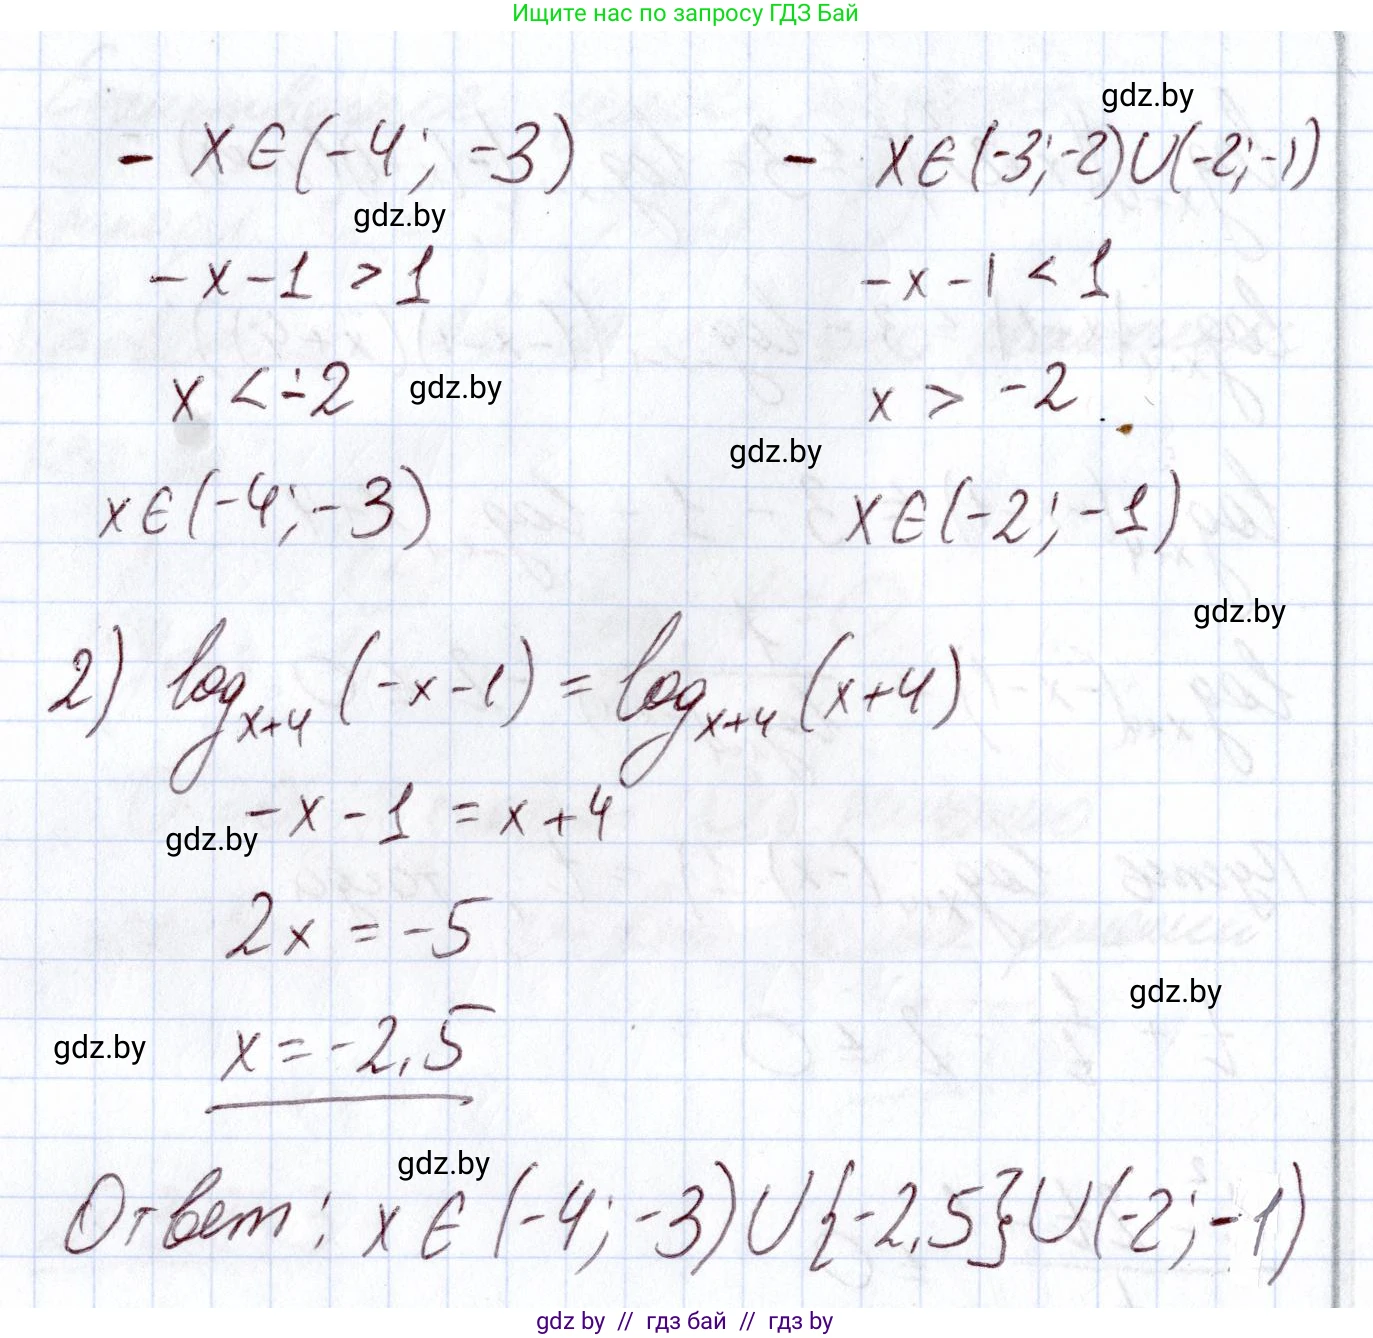 Ищите нас по запросу ГДЗ Бай
gdz.by
- x∈(-4; -3)
- x∈(-3;-2)∪(-2;-1)
gdz.by
-x-1 > 1
-x-1 < 1
x < -2
gdz.by
x > -2
gdz.by
x∈(-4; -3)
x∈(-2; -1)
gdz.by
2) log_{x+4} (-x-1) = log_{x+4} (x+4)
-x-1 = x+4
gdz.by
2x = -5
gdz.by
gdz.by
x = -2,5
gdz.by
Ответ: x∈(-4; -3)∪{-2,5}∪(-2; -1)
gdz by // гдз бай // гдз by